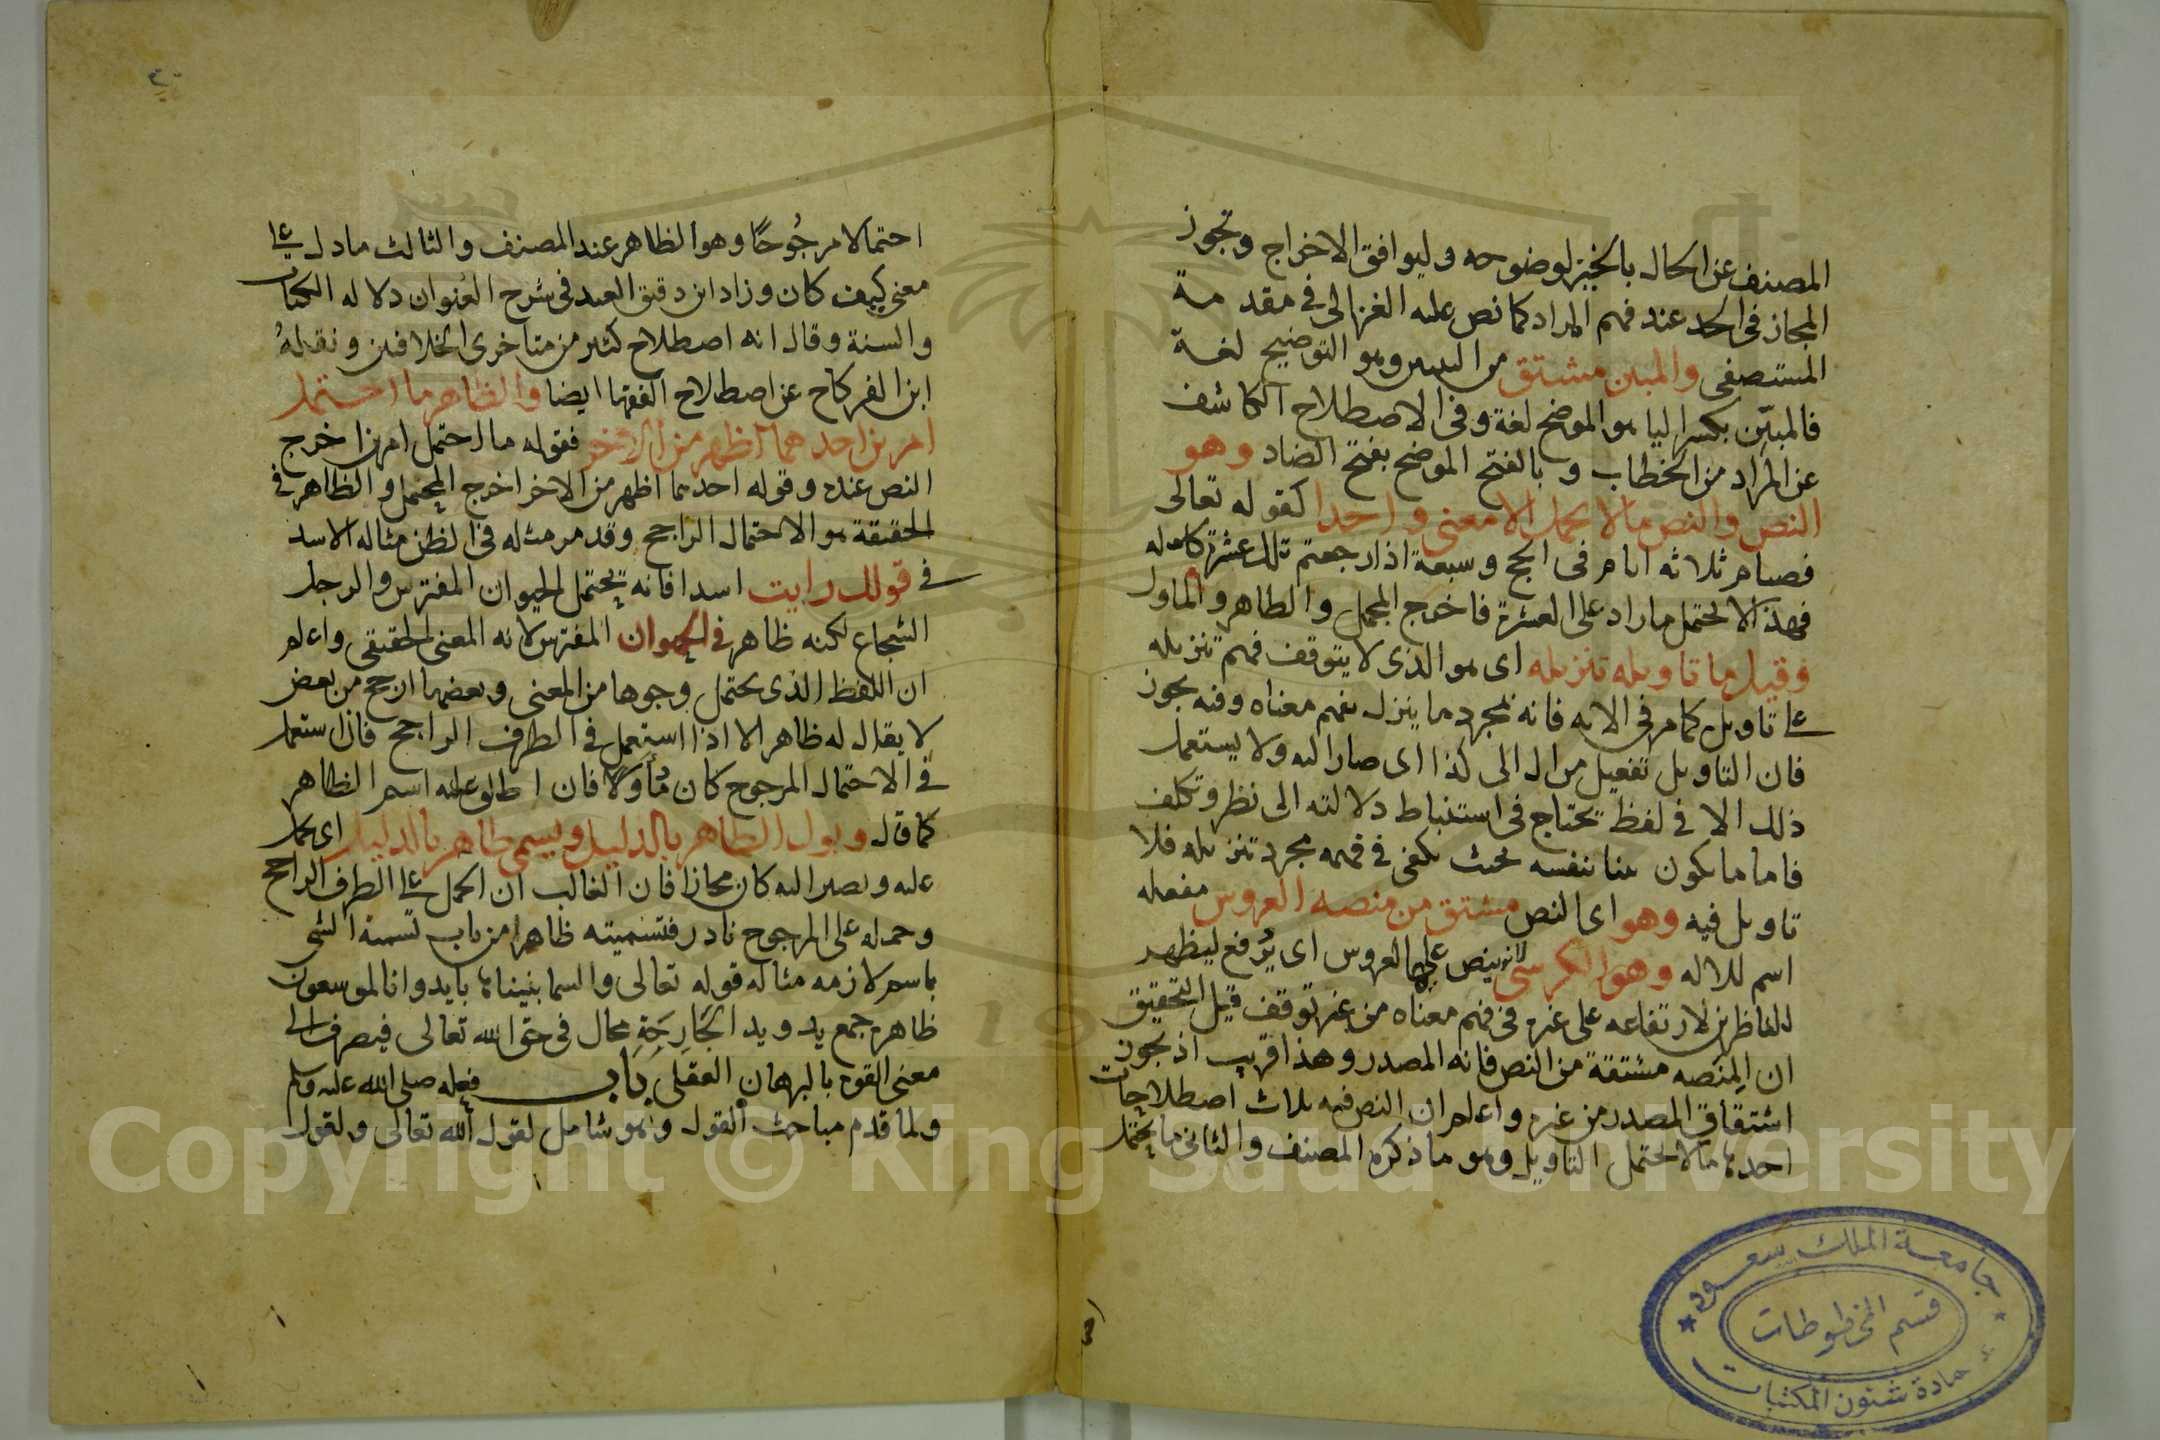 المصنف عن الحال بالخيز لوضوحه وليوافق الاخراج وتجوز
المجاز في الحد عند فهم المراد كما نص عليه الغزالي في مقدمة
المستصفى والمبين مشتق من التبيين وهو التوضيح لغة
فالمبيّن بكسر اليا هو الموضح لغة وفي الاصطلاح الكاشف
عن المراد من الخطاب و بالفتح الموضح بفتح الضاد وهو
النص والنص مالا يحمل الا معنى واحدا كقوله تعالى
فصيام ثلاثة ايام في الحج وسبعة اذا رجعتم تلك عشرة كامله
فهذا لا يحتمل ما زاد على العشرة فاخرج المجمل والظاهر والماول
وقيل ما تاويله تنزيله اي هو الذي لا يتوقف فهم تنزيله
على تاويل كما مر في الايه فانه بمجرد ما ينزل يفهم معناه وفيه يجوز
فان التاويل تفعيل من ال الى كذا اي صار اليه ولا يستعمل
ذلك الا في لفظ يحتاج في استنباط دلالته الى نظر وتكلف
فاما ما يكون بينا بنفسه بحيث يكفي في فهمه مجرد تنزيله فلا
تاويل فيه وهو اي النص مشتق من منصة العروس مفعله
اسم للاله وهو الكرسي لانه ينص عليها العروس اي يُرفع ليظهر
للناظرين لارتفاعه على غيره في فهم معناه من غير توقف قيل التحقيق
ان المِنَصه مشتقة من النص فانه المصدر وهذا قريب اذ يجوز
اشتقاق المصدر من غيره واعلم ان النص فيه ثلاث اصطلاحات
احدها مالا يحتمل التاويل وهو ما ذكره المصنف والثاني ما يحتمل
احتمالا مرجُوحًا وهو الظاهر عند المصنف والثالث ما دل على
معنى كيف كان وزاد ابن دقيق العيد في شرح العُنوان دلاله الكتاب
والسنة وقال انه اصطلاح كثير من متاخري الخلافيين ونقلهُ
ابن الفركاح عن اصطلاح الفقها ايضا والظاهر ما احتمل
امرين احدهما اظهر من الاخر فقوله ما احتمل امرين اخرج
النص عنده وقوله احدهما اظهر من الاخر اخرج المجمل والظاهر في
الحقيقة هو الاحتمال الراجح وقد مر مثله في الظن مثاله الاسد
في قولك رايت اسدا فانه يحتمل الحيوان المفترس والرجل
الشجاع لكنه ظاهر في الحيوان المفترس لانه المعنى الحقيقي واعلم
ان اللفظ الذي يحتمل وجوها من المعنى وبعضها ارجح من بعض
لا يقال له ظاهر الا اذا استعمل في الطرف الراجح فان استعمل
في الاحتمال المرجوح كان مُأولًا فان اطلق عليه اسم الظاهر
كما قال ويول الظاهر بالدليل ويسمى ظاهر بالدليل اي يحمل
عليه ويصير اليه كان مجازا فان الغالب ان الحمل على الطرف الراجح
وحمله على المرجوح نادر فتسميته ظاهرا من باب تسمية الشي
باسم لازمه مثاله قوله تعالى والسما بنيناها بايد وانا لموسعون
ظاهره جمع يد ويد الجَارِحَةِ محال في حق الله تعالى فيصرف الى
معنى القوه بالبرهان العقلي باب فعله صلى الله عليه وسلم
ولما قدم مباحث القول وهو شامل لقول الله تعالى ولقول
جامعة الملك سعود
قسم المخطوطات
عمادة شئون المكتبات
Copyright © King Saud University